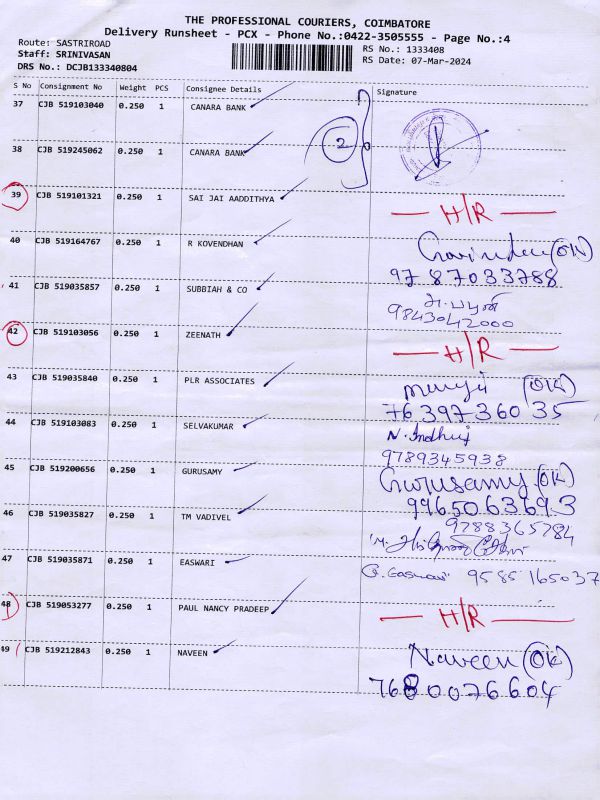 THE PROFESSIONAL COURIERS, COIMBATORE
Delivery Runsheet - PCX - Phone No.:0422-3505555 - Page No.:4
Route: SASTRIROAD
RS No.: 1333408
Staff: SRINIVASAN
RS Date: 07-Mar-2024
DRS No.: DCJB133340804
S No Consignment No Weight PCS Consignee Details Signature
37 CJB 519103040 0.250 1 CANARA BANK
2
38 CJB 519245062 0.250 1 CANARA BANK
39 CJB 519101321 0.250 1 SAI JAI AADDITHYA
H/R
40 CJB 519164767 0.250 1 R KOVENDHAN
(OK)
9787033788
41 CJB 519035857 0.250 1 SUBBIAH & CO
9843042000
42 CJB 519103056 0.250 1 ZEENATH
H/R
43 CJB 519035840 0.250 1 PLR ASSOCIATES
(OK)
7639736035
44 CJB 519103083 0.250 1 SELVAKUMAR
9789345938
45 CJB 519200656 0.250 1 GURUSAMY
Gurusamy (OK)
9965063693
46 CJB 519035827 0.250 1 TM VADIVEL
9788365784
47 CJB 519035871 0.250 1 EASWARI
9585165037
48 CJB 519053277 0.250 1 PAUL NANCY PRADEEP
H/R
49 CJB 519212843 0.250 1 NAVEEN
Naveen (OK)
7680076604